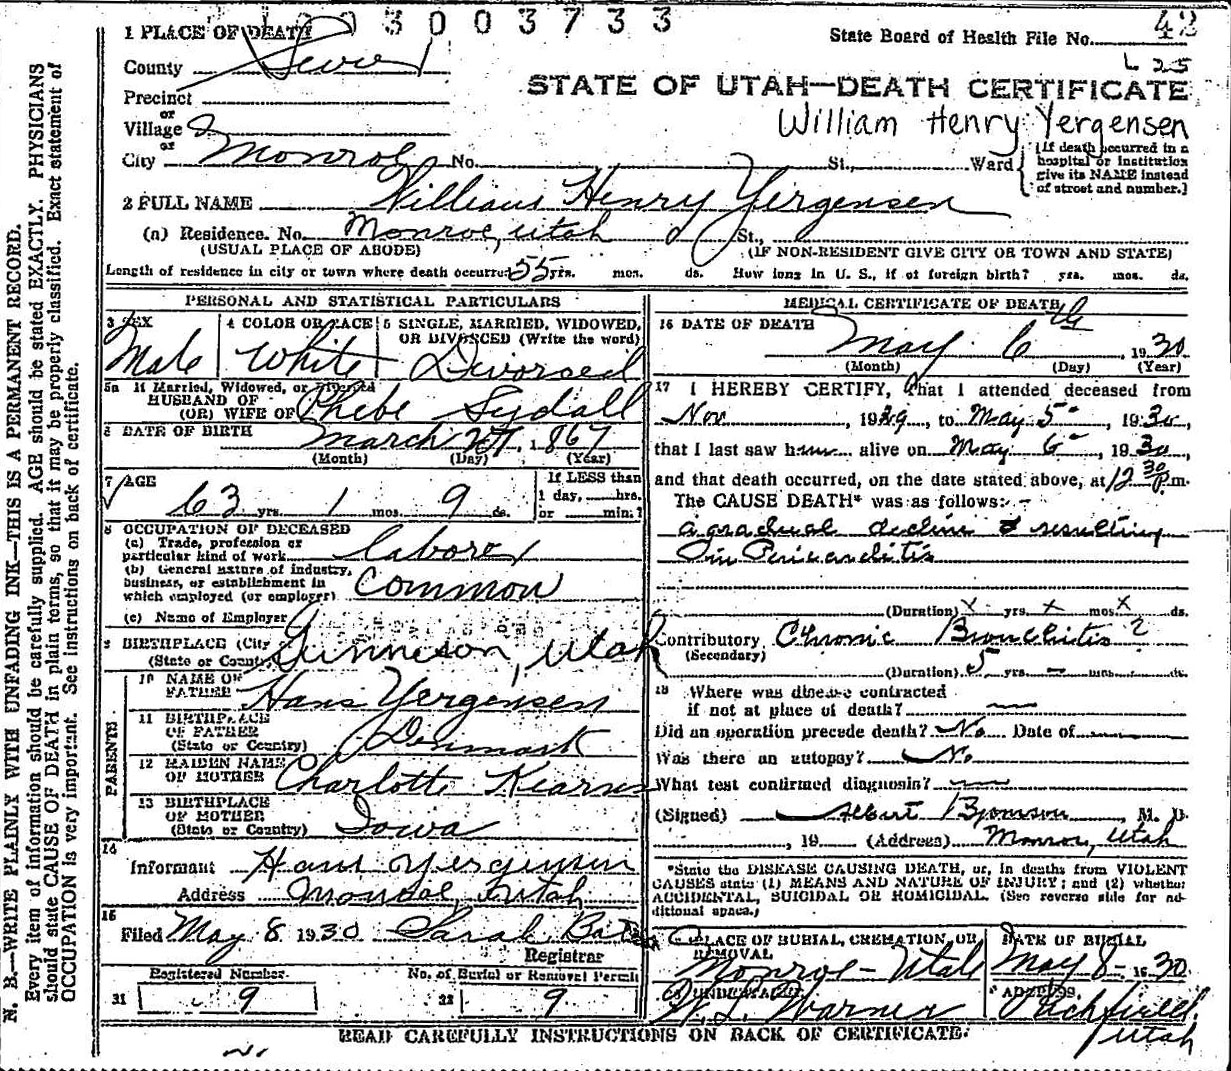 3 0 0 3 7 3 3
1 PLACE OF DEATH
State Board of Health File No. 42
County Sevier
L 25
STATE OF UTAH—DEATH CERTIFICATE
Precinct
or
Village
William Henry Yergensen
or
City Monroe No. St., Ward
{If death occurred in a
hospital or institution
give its NAME instead
of street and number.}
2 FULL NAME William Henry Yergensen
(a) Residence. No. Monroe, Utah St.,
(USUAL PLACE OF ABODE) (IF NON-RESIDENT GIVE CITY OR TOWN AND STATE)
Length of residence in city or town where death occurred 55 yrs. mos. ds. How long in U. S., if of foreign birth? yrs. mos. ds.
PERSONAL AND STATISTICAL PARTICULARS
3 SEX 4 COLOR OR RACE 5 SINGLE, MARRIED, WIDOWED,
OR DIVORCED (Write the word)
Male White Divorsed
5a If Married, Widowed, or Divorced
HUSBAND OF
(OR) WIFE OF Phebe Sydall
6 DATE OF BIRTH March 27, 1867
(Month) (Day) (Year)
7 AGE 63 yrs. 1 mos. 9 ds.
If LESS than
1 day, hrs.
or min.?
8 OCCUPATION OF DECEASED
(a) Trade, profession or
particular kind of work laborer
(b) General nature of industry,
business, or establishment in
which employed (or employer) Common
(c) Name of Employer
9 BIRTHPLACE (City Gunnison, Utah
(State or County)
PARENTS
10 NAME OF
FATHER Hans Yergensen
11 BIRTHPLACE
OF FATHER
(State or Country) Denmark
12 MAIDEN NAME
OF MOTHER Charlotte Kearnes
13 BIRTHPLACE
OF MOTHER
(State or Country) Iowa
14
Informant Hans Yergensen
Address Monroe, Utah
15
Filed May 8 1930 Sarah
Registrar
Registered Number No. of Burial or Removal Permit
21 9 22 9
MEDICAL CERTIFICATE OF DEATH
16 DATE OF DEATH May 6th, 1930
(Month) (Day) (Year)
17 I HEREBY CERTIFY, That I attended deceased from
Nov, 1929, to May 5, 1930,
that I last saw him alive on May 6, 1930,
and that death occurred, on the date stated above, at 12 30 P.m.
The CAUSE DEATH* was as follows:
a gradual decline & resulting
in Pericarditis
(Duration) x yrs. x mos. x ds.
Contributory Chronic Bronchitis ?
(Secondary)
(Duration) 5 yrs. – mos. ds.
18 Where was disease contracted
if not at place of death?
Did an operation precede death? No Date of
Was there an autopsy? No
What test confirmed diagnosis?
(Signed) Albert Bjornson, M. D.
, 19 (Address) Monroe, Utah
*State the DISEASE CAUSING DEATH, or, in deaths from VIOLENT
CAUSES state (1) MEANS AND NATURE OF INJURY; and (2) whether
ACCIDENTAL, SUICIDAL OR HOMICIDAL. (See reverse side for ad-
ditional space.)
PLACE OF BURIAL, CREMATION, OR
REMOVAL
Monroe – Utah
DATE OF BURIAL
May 8 1930
UNDERTAKER
Warner
ADDRESS
Richfield,
Utah
READ CAREFULLY INSTRUCTIONS ON BACK OF CERTIFICATE.
N. B.—WRITE PLAINLY WITH UNFADING INK—THIS IS A PERMANENT RECORD.
Every item of information should be carefully supplied. AGE should be stated EXACTLY. PHYSICIANS
should state CAUSE OF DEATH in plain terms, so that it may be properly classified. Exact statement of
OCCUPATION is very important. See instructions on back of certificate.